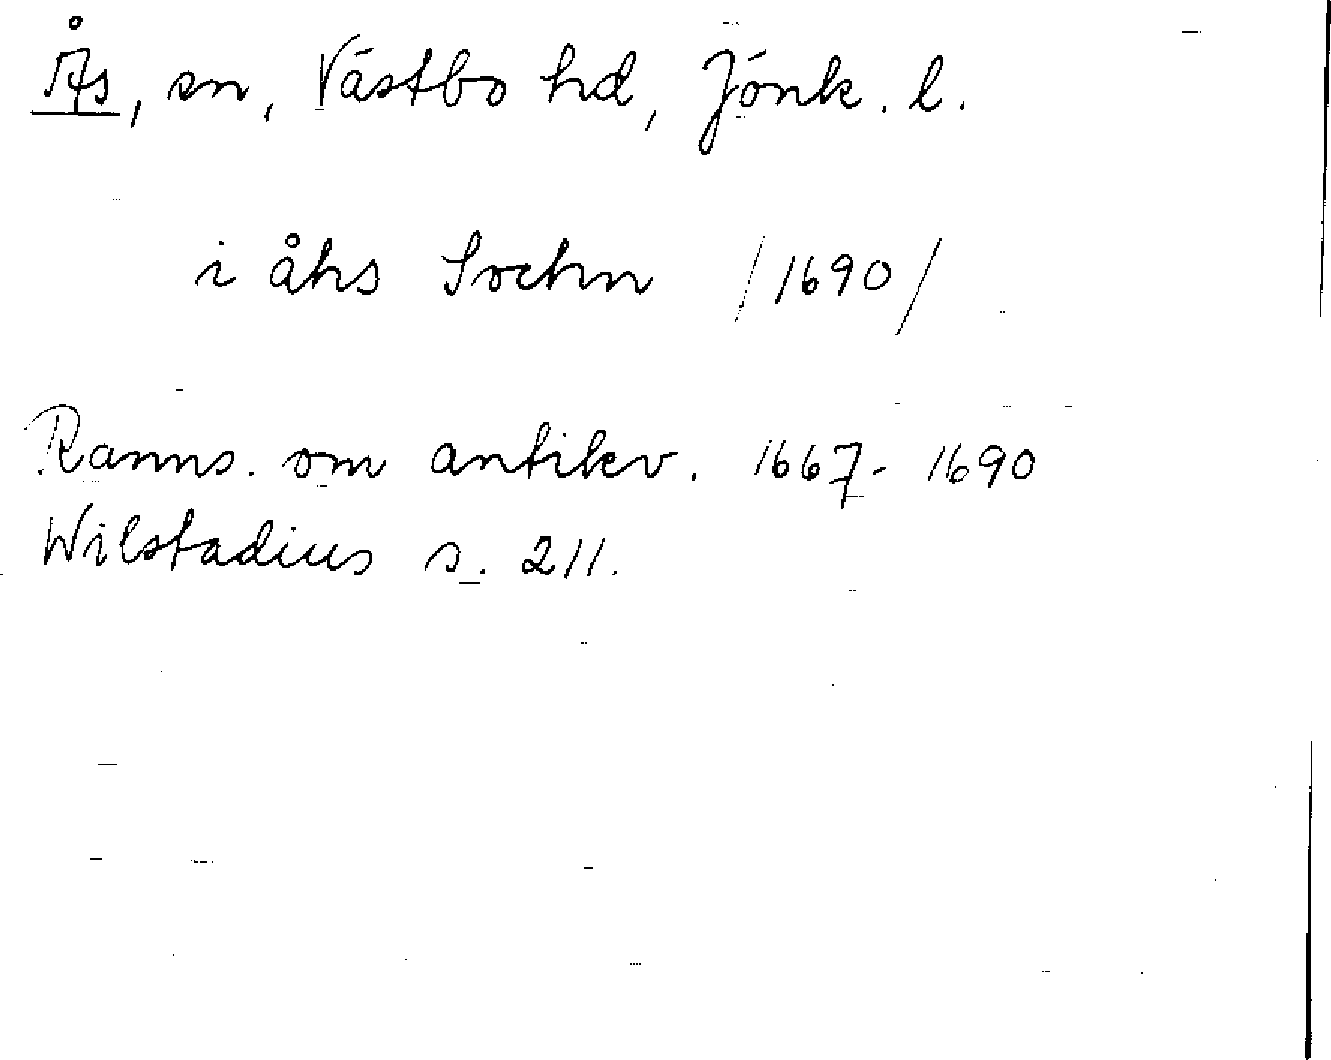 Ås, sn, Västbo hd, Jönk. l.
i åhs Sochn /1690/
Ranns. om antikv. 1667-1690
Wilstadius s. 211.